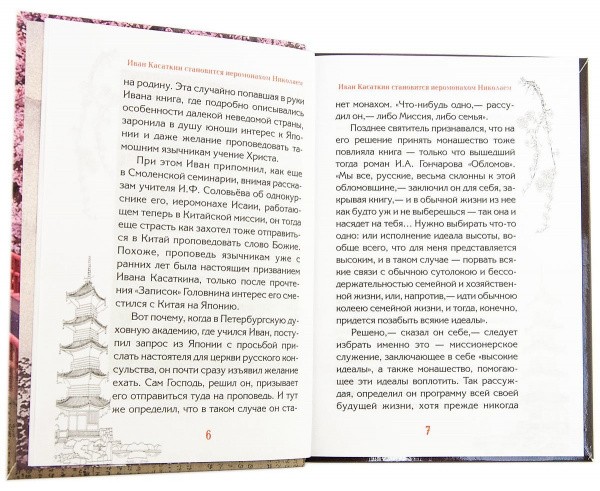 Иван Касаткин становится иеромонахом Николаем
на родину. Эта случайно попавшая в руки
Ивана книга, где подробно описывались
особенности далекой неведомой страны,
заронила в душу юноши интерес к Япо-
нии и даже желание проповедовать та-
мошним язычникам учение Христа.
При этом Иван припомнил, как еще
в Смоленской семинарии, внимая расска-
зам учителя И.Ф. Соловьёва об однокур-
снике его, иеромонахе Исаии, работаю-
щем теперь в Китайской миссии, он тогда
еще страсть как захотел тоже отправить-
ся в Китай проповедовать слово Божие.
Похоже, проповедь язычникам уже с
ранних лет была настоящим призванием
Ивана Касаткина, только после прочте-
ния «Записок» Головнина интерес его сме-
стился с Китая на Японию.
Вот почему, когда в Петербургскую ду-
ховную академию, где учился Иван, посту-
пил запрос из Японии с просьбой присы-
лать настоятеля для церкви русского кон-
сульства, он почти сразу изъявил желание
ехать. Сам Господь, решил он, призывает
его отправиться туда на проповедь. И тут
же определил, что в таком случае он ста-
6
Иван Касаткин становится иеромонахом Николаем
нет монахом. «Что-нибудь одно,— рассу-
дил он,— либо Миссия, либо семья».
Позднее святитель признавался, что на
его решение принять монашество тоже
повлияла книга — только что вышедший
тогда роман И.А. Гончарова «Обломов».
«Мы все, русские, весьма склонны к этой
обломовщине,— заключил он для себя, за-
крывая книгу,— и в обычной жизни из нее
как будто уж и не выберешься — так она и
насядет на тебя... Нужно выбирать что-то
одно: или исполнение идеала высоты, во-
обще всего, что для меня представляется
высоким, и в таком случае — порвать все
связи с обычною сутолокою и бессо-
держательностью семейной и хозяйствен-
ной жизни, или, напротив,— идти обычною
колеею семейной жизни, и тогда, конечно,
придется позабыть всякие идеалы».
Решено,— сказал он себе,— следует
избрать именно это — миссионерское
служение, заключающее в себе «высокие
идеалы», а также монашество, помогаю-
щее эти идеалы воплотить. Так рассуж-
дая, определил он программу всей своей
будущей жизни, хотя прежде никогда
7